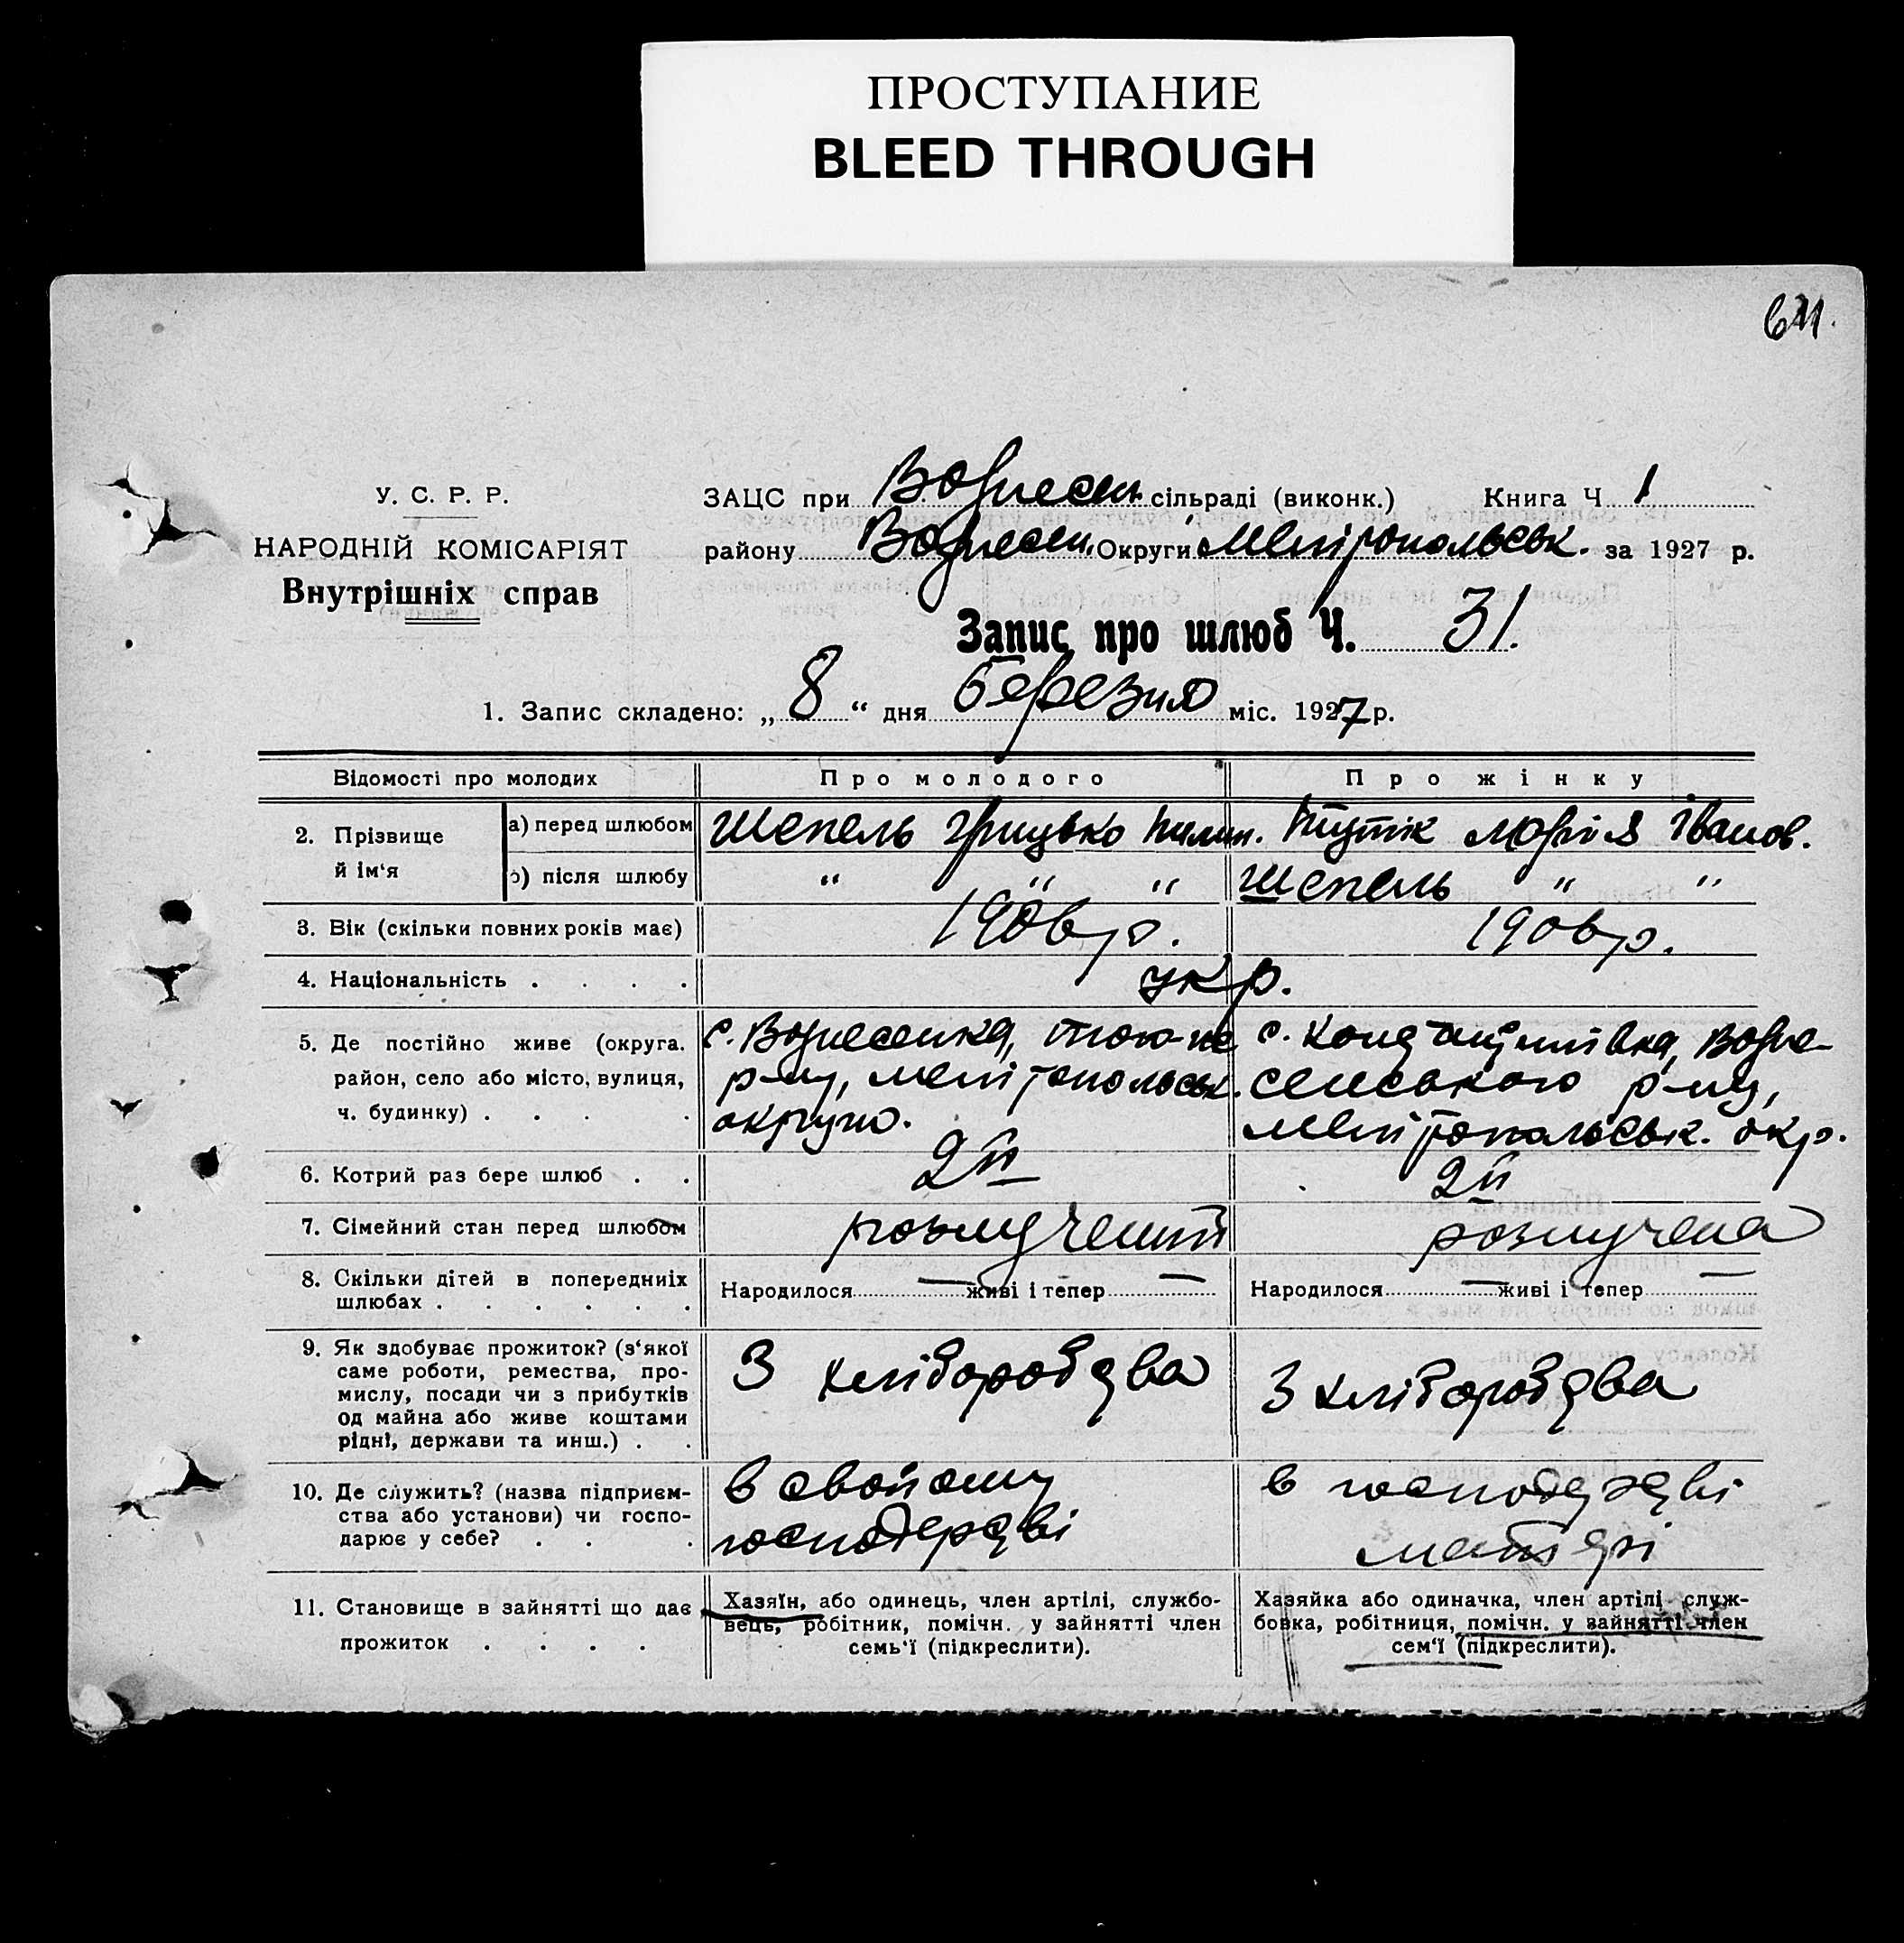 ПРОСТУПАНИЕ
BLEED THROUGH
У. С. Р. Р.
НАРОДНІЙ КОМІСАРІЯТ
Внутрішніх справ
ЗАЦС при Вознесен. сільраді (виконк.) Книга Ч 1
району Вознесен. Округи Мелітопольськ. за 1927 р.
Запис про шлюб Ч. 31.
1. Запис складено: „ 8 “ дня березня міс. 1927 р.
Відомості про молодих
Про молодого
Про жінку
2. Прізвище й ім‘я
а) перед шлюбом
Шепель Грицько Пилип.
Марія Іванов.
б) після шлюбу
“ “ “
Шепель “ “
3. Вік (скільки повних років має)
1906 р.
1906 р.
4. Національність . . . .
укр.
5. Де постійно живе (округа.
район, село або місто, вулиця,
ч. будинку) . . . .
с. Вознесенка, того-же
р-ну, мелітопольськ.
округи.
с. Константинівка, Возне-
сенського р-ну,
мелітопольськ. окр.
6. Котрий раз бере шлюб . .
2й
2й
7. Сімейний стан перед шлюбом
розлучений
розлучена
8. Скільки дітей в попередниіх
шлюбах . . . . . .
Народилося — живі і тепер —
Народилося — живі і тепер —
9. Як здобуває прожиток? (з‘якої
саме роботи, ремества, про-
мислу, посади чи з прибутків
од майна або живе коштами
рідні, держави та инш.) . .
З хліборобства
З хліборобства
10. Де служить? (назва підприєм-
ства або установи) чи госпо-
дарює у себе? . . .
в свойому
господарстві
в господарстві
матері
11. Становище в зайнятті що дає
прожиток . . . .
Хазяїн, або одинець, член артілі, службо-
вець, робітник, помічн. у зайнятті член
семь‘ї (підкреслити).
Хазяйка або одиначка, член артілі служ-
бовка, робітниця, помічн. у зайнятті член
сем‘ї (підкреслити).